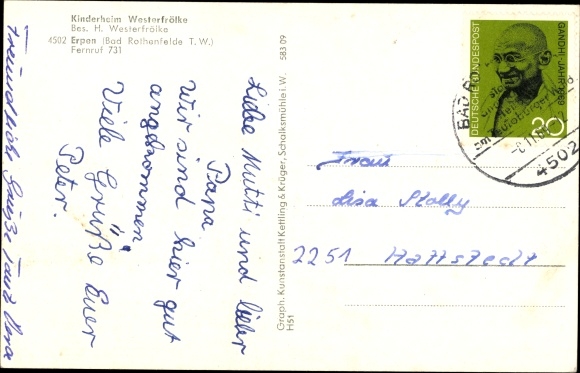 Kinderheim Westerfrölke
Bes. H. Westerfrölke
4502 Erpen (Bad Rothenfelde T. W.)
Fernruf 731
583 09
Liebe Mutti und lieber
Papa
Wir sind hier gut
angekommen
Viele Grüße Euer
Peter.
Freundliche Grüße Tante
Graph. Kunstanstalt Kettling & Krüger, Schalksmühle i. W.
H51
DEUTSCHE BUNDESPOST
GANDHI-JAHR 1969
30
BAD
4502
Frau
Lisa Stolly
2251 Hattstedt